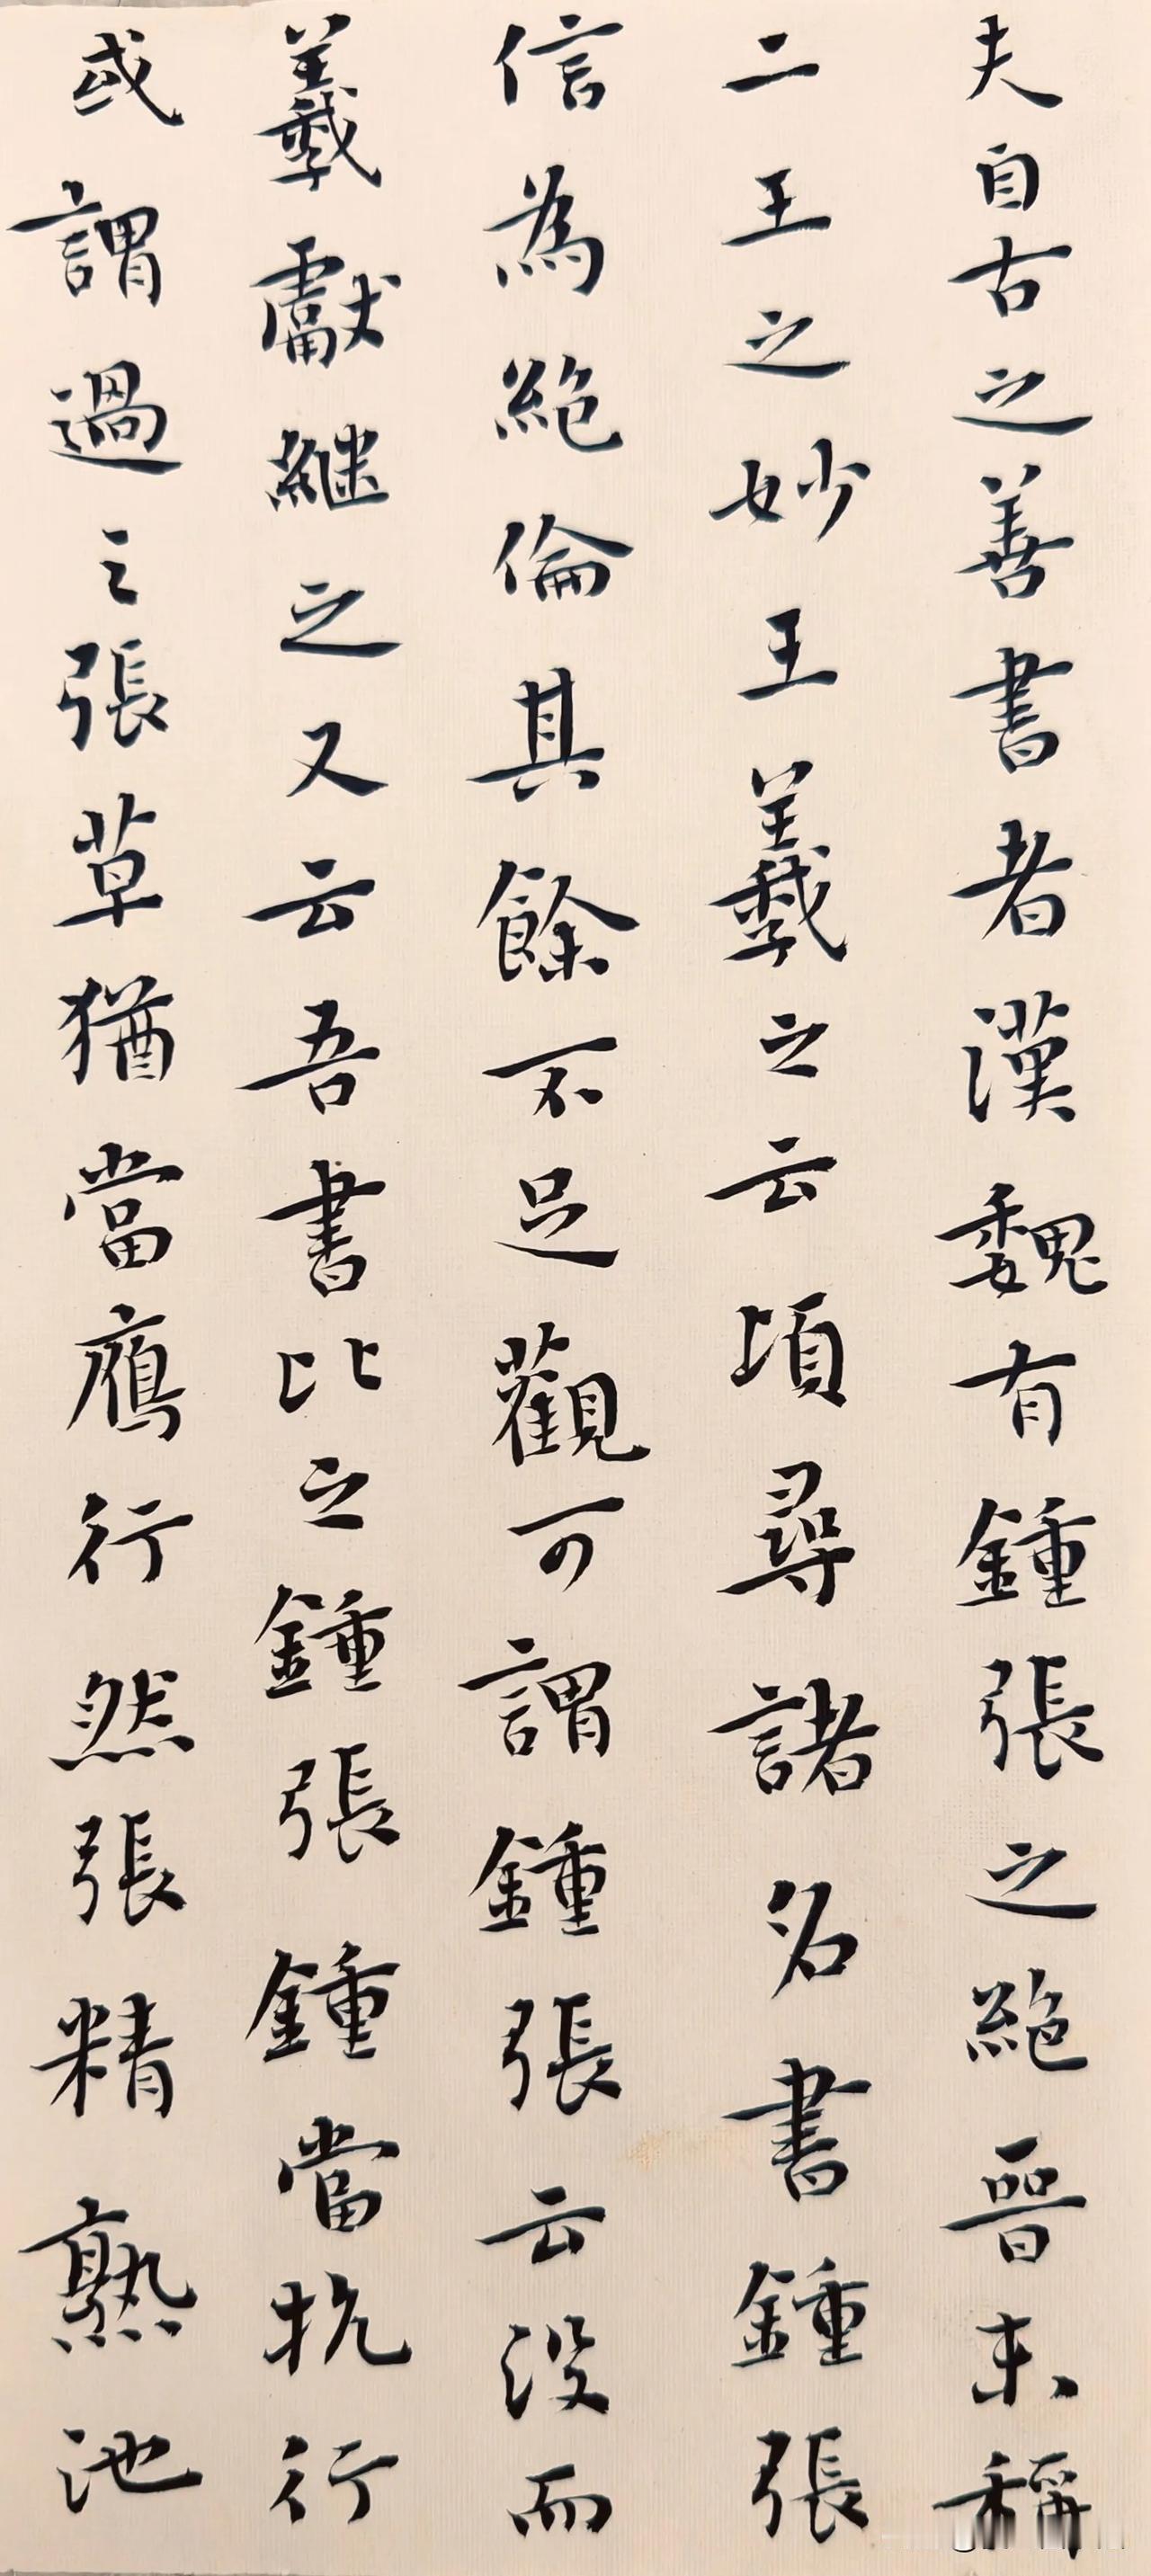 夫自古之善書者漢魏有鍾張之絕晉末稱
二王之妙王羲之云頃尋諸名書鍾張
信為絕倫其餘不足觀可謂鍾張云沒而
羲獻繼之又云吾書比之鍾張鍾當抗行
或謂過之張草猶當鴈行然張精熟池